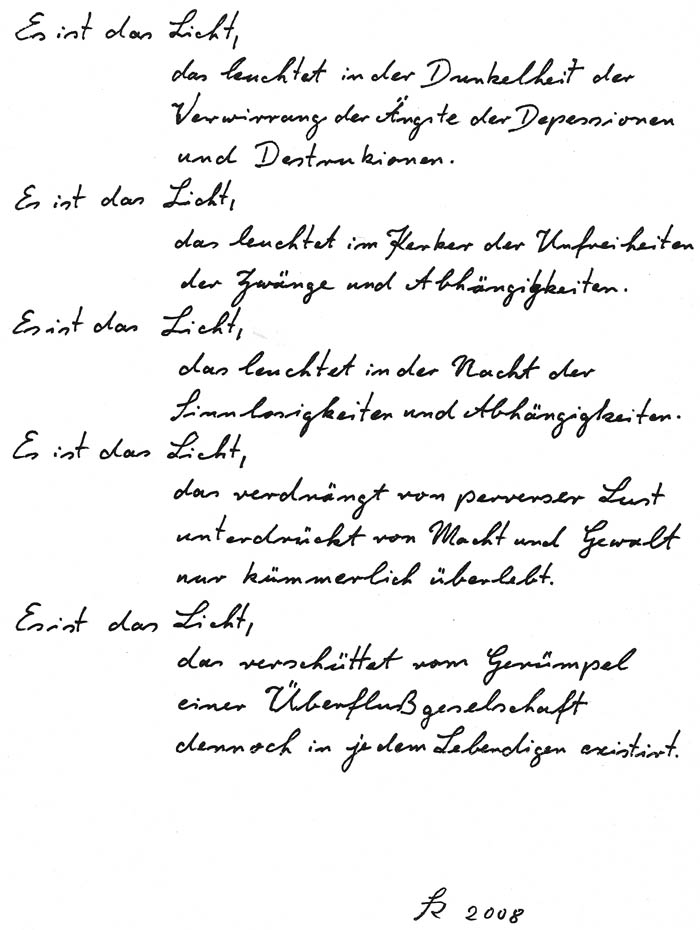 Es ist das Licht,
das leuchtet in der Dunkelheit der
Verwirrung der Ängste der Depessionen
und Destrukionen.
Es ist das Licht,
das leuchtet im Kerker der Unfreiheiten
der Zwänge und Abhängigkeiten.
Es ist das Licht,
das leuchtet in der Nacht der
Sinnlosigkeiten und Abhängigkeiten.
Es ist das Licht,
das verdrängt von perverser Lust
unterdrückt von Macht und Gewalt
nur kümmerlich überlebt.
Es ist das Licht,
das verschüttet vom Gerümpel
einer Überflußgeselschaft
dennoch in jedem Lebendigen existirt.
2008